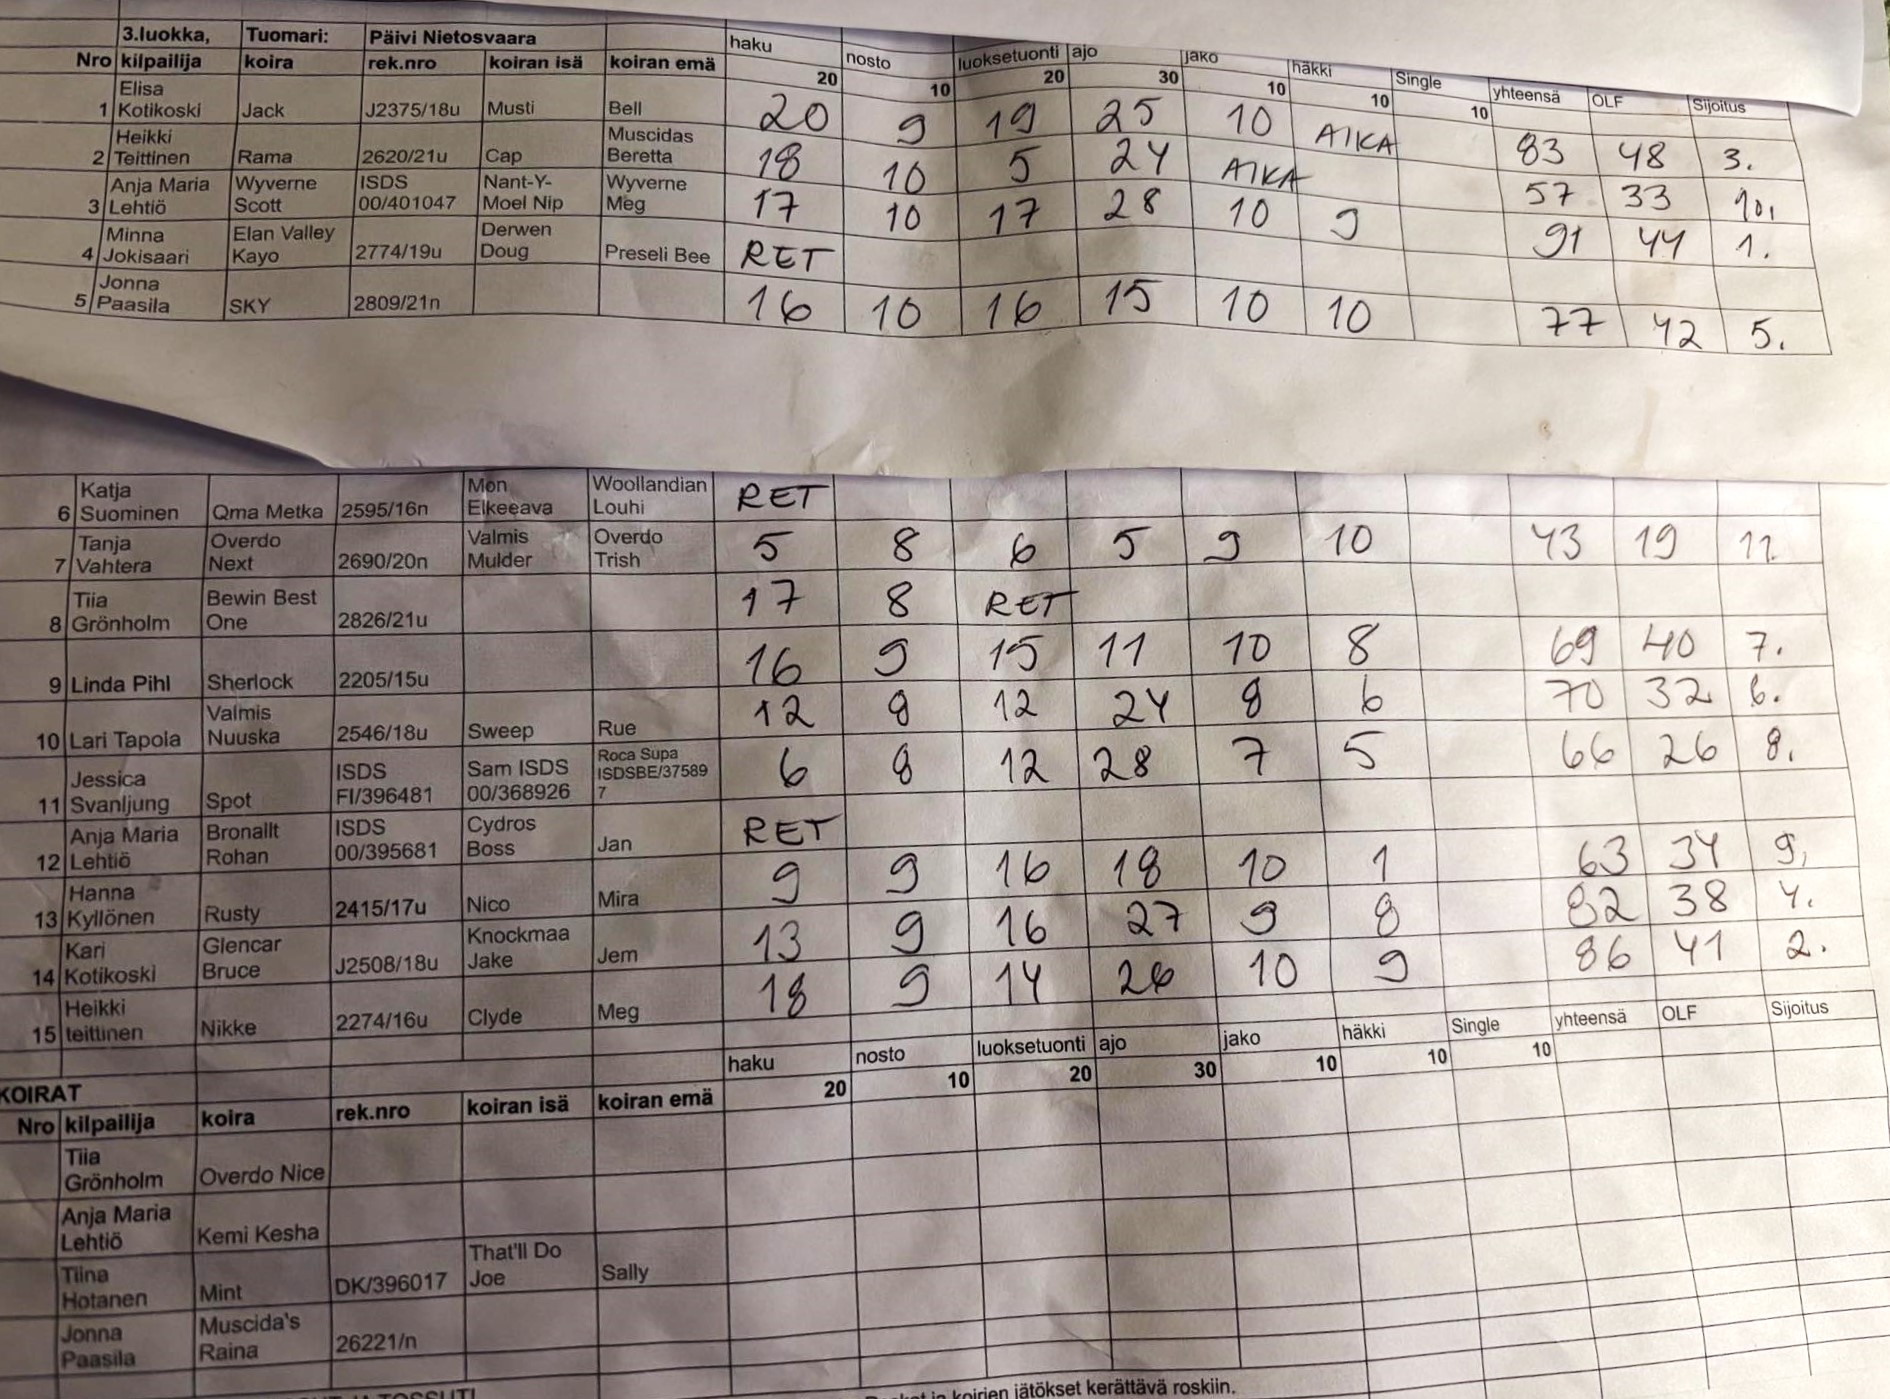 3.luokka, Tuomari: Päivi Nietosvaara haku nosto luoksetuonti ajo jako häkki Single yhteensä OLF Sijoitus
Nro kilpailija koira rek.nro koiran isä koiran emä 20 10 20 30 10 10 10
Elisa
1 Kotikoski Jack J2375/18u Musti Bell 20 9 19 25 10 AIKA 83 48 3.
Heikki Muscidas
2 Teittinen Rama 2620/21u Cap Beretta 18 10 5 24 AIKA 57 33 10.
Anja Maria Wyverne ISDS Nant-Y- Wyverne
3 Lehtiö Scott 00/401047 Moel Nip Meg 17 10 17 28 10 9 91 44 1.
Minna Elan Valley Derwen
4 Jokisaari Kayo 2774/19u Doug Preseli Bee RET
Jonna
5 Paasila SKY 2809/21n 16 10 16 15 10 10 77 42 5.
Katja Mon Woollandian
6 Suominen Qma Metka 2595/16n Elkeeava Louhi RET
Tanja Overdo Valmis Overdo
7 Vahtera Next 2690/20n Mulder Trish 5 8 6 5 9 10 43 19 11.
Tiia Bewin Best
8 Grönholm One 2826/21u 17 8 RET
9 Linda Pihl Sherlock 2205/15u 16 9 15 11 10 8 69 40 7.
Valmis
10 Lari Tapola Nuuska 2546/18u Sweep Rue 12 8 12 24 8 6 70 32 6.
Jessica ISDS Sam ISDS Roca Supa
ISDSBE/37589
11 Svanljung Spot FI/396481 00/368926 7 6 8 12 28 7 5 66 26 8.
Anja Maria Bronallt ISDS Cydros
12 Lehtiö Rohan 00/395681 Boss Jan RET
Hanna
13 Kyllönen Rusty 2415/17u Nico Mira 9 9 16 18 10 1 63 34 9.
Kari Glencar Knockmaa
14 Kotikoski Bruce J2508/18u Jake Jem 13 9 16 27 9 8 82 38 4.
Heikki
15 teittinen Nikke 2274/16u Clyde Meg 18 9 14 26 10 9 86 41 2.
haku nosto luoksetuonti ajo jako häkki Single yhteensä OLF Sijoitus
KOIRAT 20 10 20 30 10 10 10
Nro kilpailija koira rek.nro koiran isä koiran emä
Tiia
Grönholm Overdo Nice
Anja Maria
Lehtiö Kemi Kesha
Tiina That'll Do
Hotanen Mint DK/396017 Joe Sally
Jonna Muscida's
Paasila Raina 26221/n
koirien jätökset kerättävä roskiin.